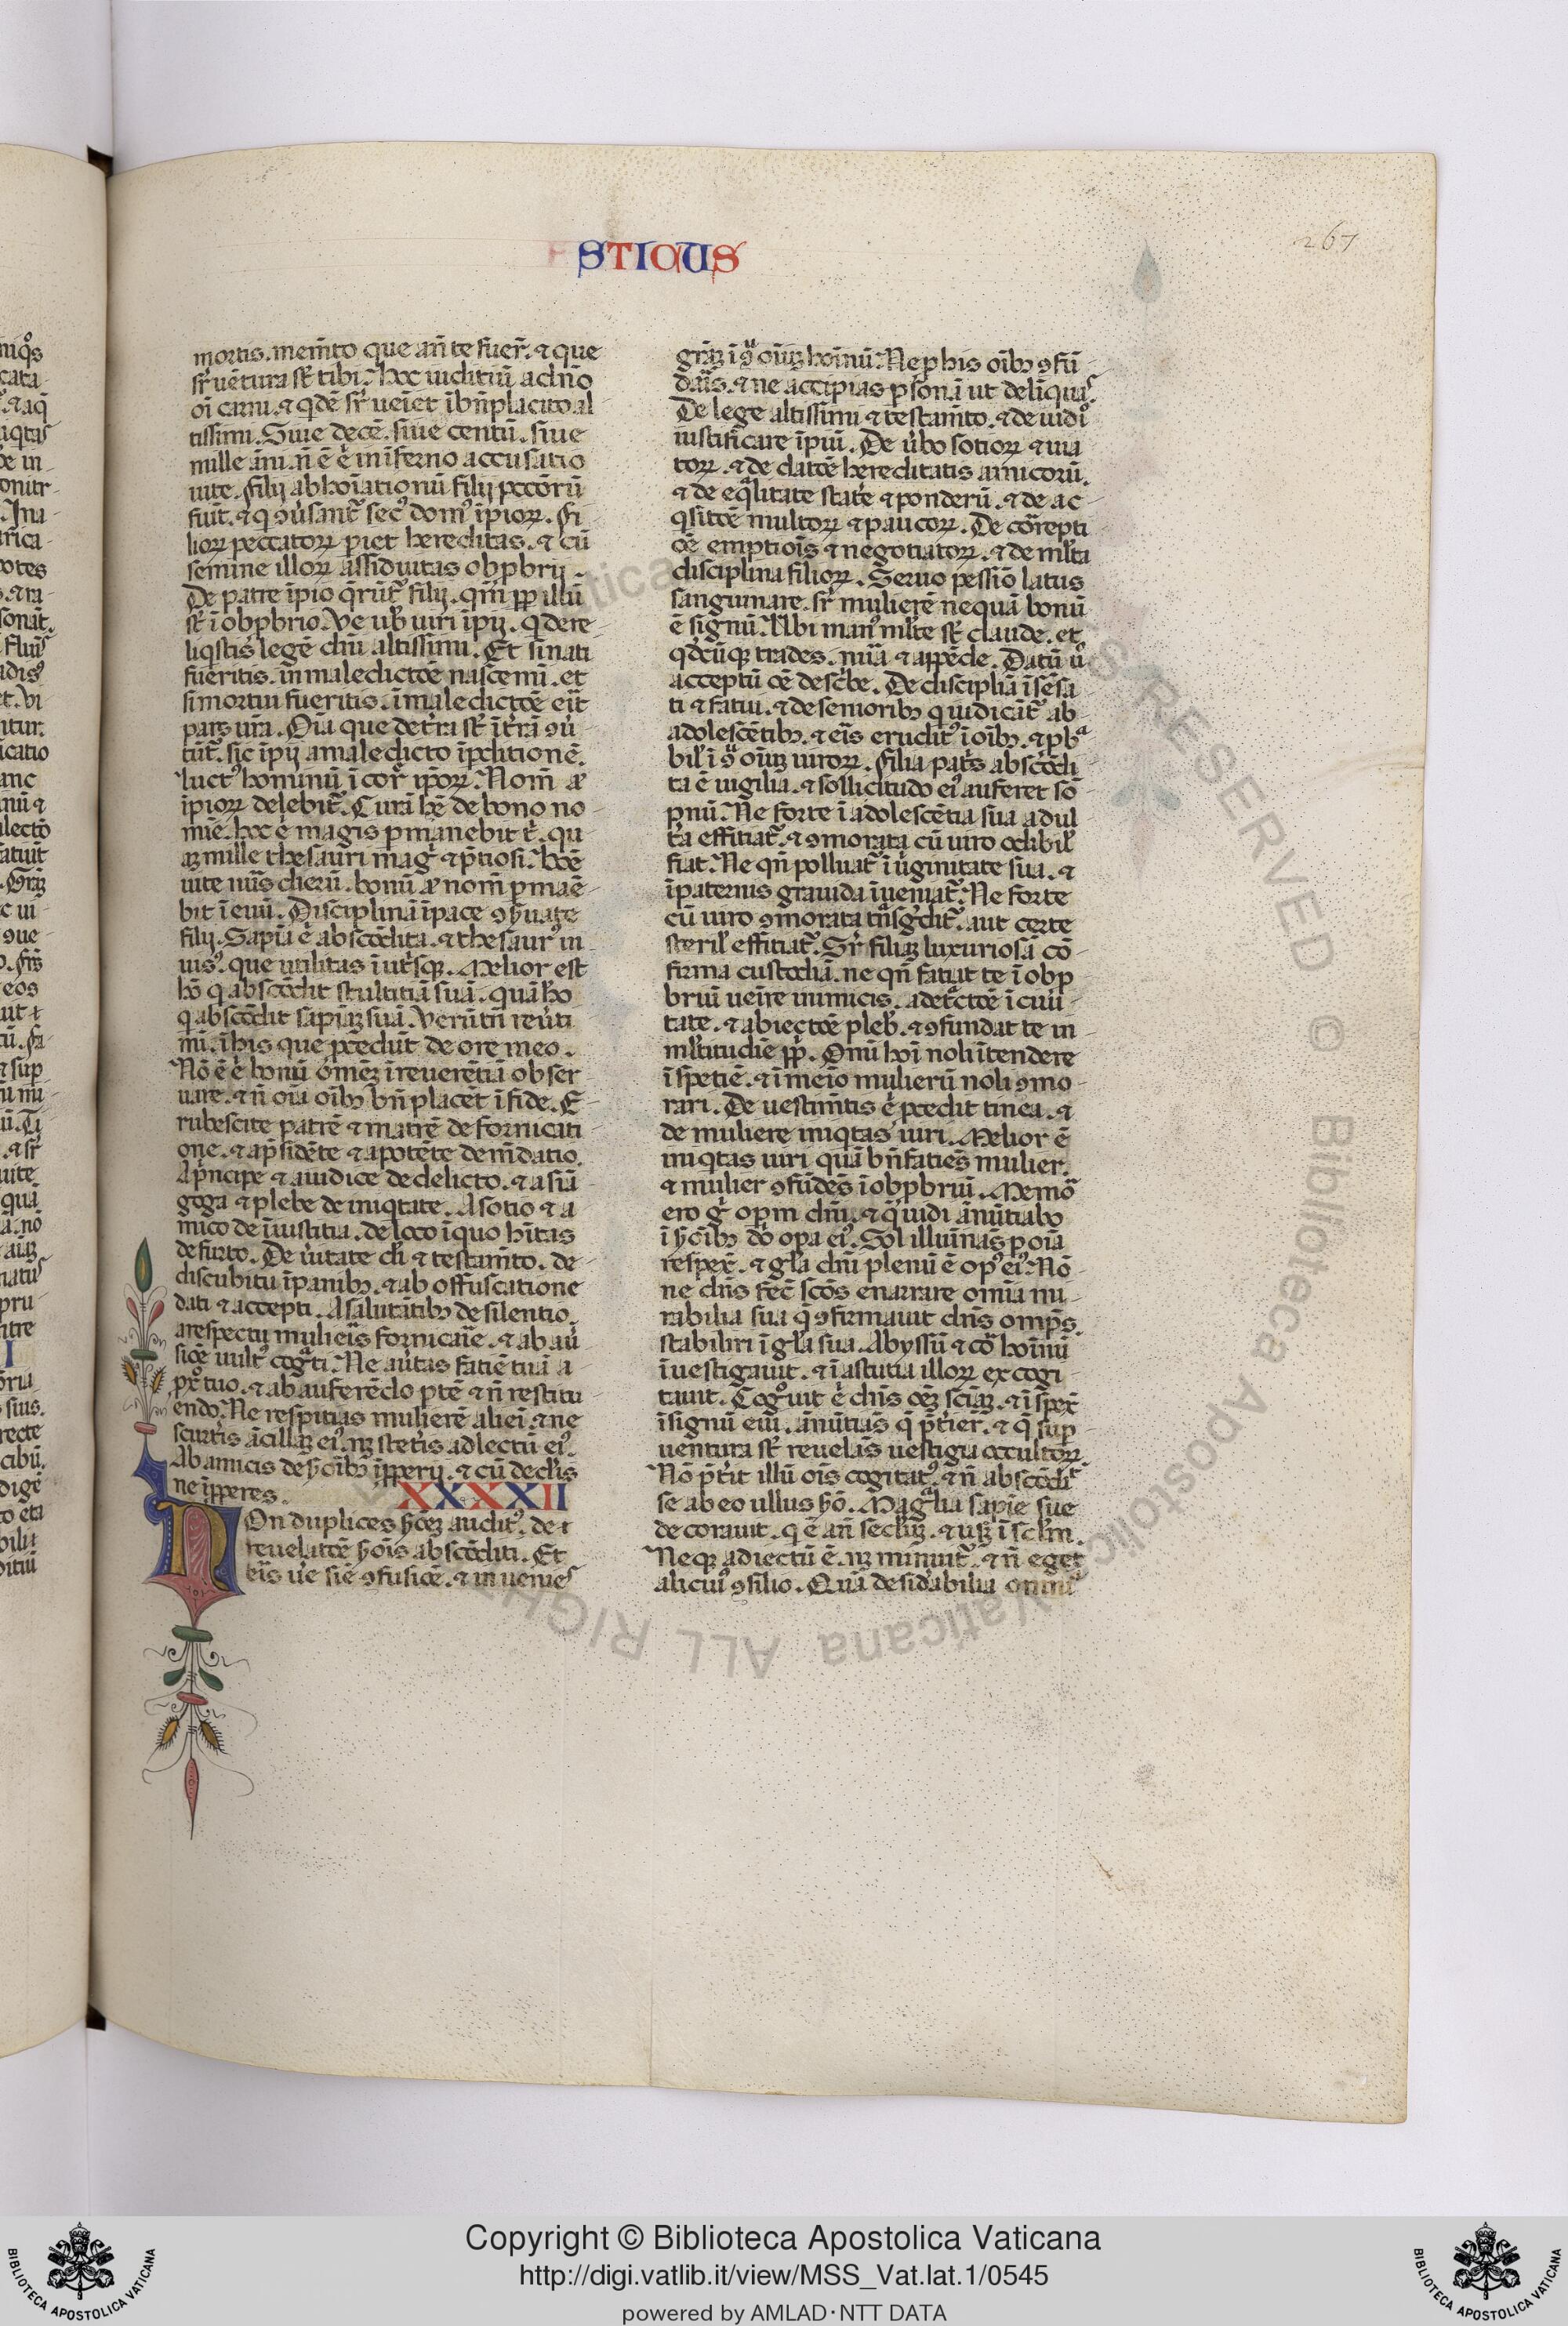 STICUS
267
mortis. mem̄to que an̄ te fuer̄. ⁊ que
sr̄ uētura st̄ tibi. hoc iuditiū a dn̄o
oī carni. ⁊ qd̄ē sr̄ ueīet ī bn̄placito al
tissimi. Siue decē. siue centū. siue
mille āni. n̄ ē ē in inferno accusatio
uite. filij abhoīationū filij pccōrū
fiūt. ⁊ q ꝯūsant᷑ sec᷒ dom᷒ īpioꝝ. Fi
lioꝝ peccatoꝝ piet hereditas. ⁊ cū
semine illoꝝ assiduitas obpbrij.
De patre īpio q̄rūt᷑ filij. qm̄ ꝓp illū
st̄ ī obpbrio. Ve ub̄ uiri īpij. q dere-
liqstis legē dn̄i altissimi. Et si nati
fueritis. in maledictōe nascemī. et
si mortui fueritis. ī maledictōe eīt
pars ur̄a. Oīa que de t̄ra st̄ ī t̄rā ꝯū
tūt᷑. sic īpij a maledicto ī pditionē.
luct᷒ hominū ī cor̄ ip̄oꝝ. Nom̄ aꝫ
īpioꝝ delebit᷑. Curā hē de bono no-
mīe. hoc ē magis pmanebit t̄. qu
aꝫ mille thesauri maḡ ⁊ p̄tiosi. bōe
uite nūs dierū. bonū aꝫ nom̄ pmāe-
bit ī euū. Disciplinā ī pace ꝯs̄uate
filij. Sapīa ē abscōdita. ⁊ thesaur᷒ in
uis᷒. que utilitas ī ut̄sqꝫ. Melior est
hō q abscōdit stultitiā suā. quā hō
q abscōdit sapīaꝫ suā. Verūtn̄ reūti
mī. ī his que pcedūt de ore meo.
Nō ē ē bonū omēꝫ ireuerētiā obser
uare. ⁊ n̄ oīa oībꝫ bn̄ placēt ī fide. E-
rubescite patrē ⁊ matrē de fornicati
one. ⁊ a p̄sidēte ⁊ a potēte de mēdatio.
A p̄ncipe ⁊ a iudice de delicto. ⁊ a sīa
goga ⁊ plebe de iniqtate. A sotio ⁊ a
mico de īiustitia. de loco ī quo hītas
de furto. De ūitate dī ⁊ testam̄to. de-
discubitu ī panibꝫ. ⁊ ab offuscatione
dati ⁊ accepti. A salutātibꝫ de silentio.
a respectu muliēis fornicāie. ⁊ ab aū
siōe uult᷒ cogn̄ti. Ne aūtas fatiē tuā a
px̄ tuo. ⁊ ab auferēdo ptē ⁊ n̄ restitu
endo. Ne respitias mulierē alieī ⁊ ne
scrut̄is ācillāꝫ ei᷒. nꝫ stet̄is ad lectū ei᷒.
Ab amicis de s̄cīībꝫ īpperij. ⁊ cū ded̄is
ne īpperes.
XXXXII
NOn duplices s̄cēꝫ audit᷒. de ⁊
reuelatōe s̄cōis abscōditi. Et
eīs ue siē ꝯfusiōe. ⁊ in uenies
gr̄aꝫ ī ꝯ̄ oīuꝫ hoīnū. Ne p his oībꝫ ꝯfū-
dāis. ⁊ ne accipias psōnā ut deliquas.
De lege altissimi ⁊ testam̄to. ⁊ de iudiº
iustificare īpiū. De ūbo sotioꝝ ⁊ uia
toꝝ. ⁊ de datōe hereditatis amicorū.
⁊ de eqlitate state ⁊ ponderū. ⁊ de ac-
qsitōe multoꝝ ⁊ paucoꝝ. De cōrepti
ōe emptiois ⁊ negotiatoꝝ. ⁊ de ml̄ta
disciplina filioꝝ. Seruo pessīo latus
sanguinare. sr̄ mulierē nequā bonū
ē signū. Ubi man᷒ ml̄te st̄ claude. et
qdcūqꝫ trades. nūa ⁊ appēde. Datū ū
acceptū ōe desc̄be. De discipliā īsēsa
ti ⁊ fatui. ⁊ de senioribꝫ q iudicāt᷑ ab
adolescētibꝫ. ⁊ eīs erudit᷒ ī oībꝫ. ⁊ pbª
bil̄ ī ꝯ̄ oīuꝫ uiroꝝ. filia pat̄s abscōdi
ta ē uigilia. ⁊ sollicitudo ei᷒ auferet sō
pnū. Ne forte ī adolescētia sua adul
t̄a effitiat᷑. ⁊ ꝯmorata cū uiro odibil̄
fiat. Ne qn̄ polluat᷑ ī ūginitate sua. ⁊
ī paternis grauida īueniat᷑. Ne forte
cū uiro ꝯmorata tn̄sḡdit᷑. aut certe
steril̄ effitiat᷑. Sr̄ filiaꝫ luxuriosā cō-
firma custodiā. ne qn̄ fatiat te ī obp
briū ueīre inimicis. a det̄ctōe ī ciui-
tate. ⁊ abiectōe pleb̄. ⁊ ꝯfundat te in
ml̄titudīe ppl̄. Omī hoī noli ītendere
ī spetiē. ⁊ ī meīo mulierū noli ꝯmo-
rari. De uestim̄tis ē pcedit tinea. ⁊
de muliere iniqtas uiri. Melior ē
iniqtas uiri quā bn̄faties mulier.
⁊ mulier ꝯfūdēs ī obpbriū. Memō
ero ḡ opm dn̄i. ⁊ q̄ uidi ānūtiabo
ī s̄cōībꝫ dō opa ei᷒. Sol illuīnās p oīa
respex̄. ⁊ gl̄a dn̄i plenū ē op᷒ ei᷒. Nō-
ne dn̄s fēc̄ scōs enarrare omīa mi-
rabilia sua q̄ ꝯfirmauit dn̄s omps̄.
stabiliri ī gl̄a sua. Abyssū ⁊ cō hoīnū
īuestigauit. ⁊ ī astutia illoꝝ excogi-
tauit. Cogºuit ē dn̄s oēꝫ sciāꝫ. ⁊ īspex̄
ī signū eiū. ānūtiās q̄ p̄tier̄. ⁊ q̄ sup
uentura st̄ reuelās uestigia occultoꝝ.
Nō p̄tit illū oīs cogitat᷒. ⁊ n̄ abscōdit
se ab eo ullus s̄mō. Magªlia sapīe sue
decorauit. q ē an̄ seclūꝫ. ⁊ usqꝫ ī sclm̄.
Neqꝫ adiectū ē. nꝫ minuit᷑. ⁊ n̄ eget
alicui᷒ ꝯsilio. Quā desidabilia omia
Copyright © Biblioteca Apostolica Vaticana
http://digi.vatlib.it/view/MSS_Vat.lat.1/0545
powered by AMLAD·NTT DATA